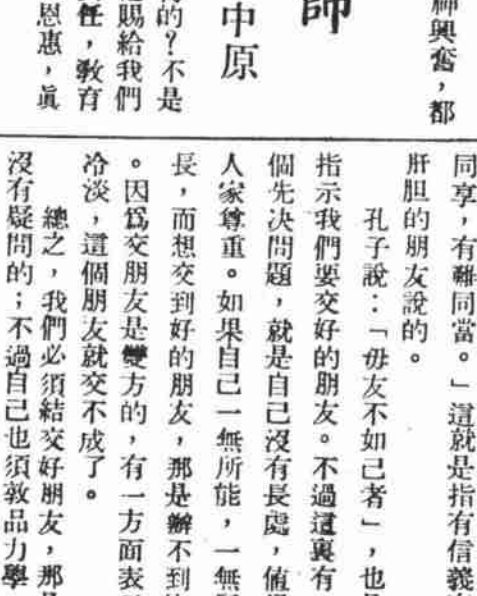 神興奮，都
師
中原
的？不是
賜給我們
任，敎育
恩惠，眞
同享，有難同當。」這就是指有信義
肝胆的朋友說的。
孔子說：「毋友不如己者」，也
指示我們要交好的朋友。不過這裏有
個先决問題，就是自己沒有長處，値
人家尊重。如果自己一無所能，一無
長，而想交到好的朋友，那是辦不到
。因爲交朋友是雙方的，有一方面表
冷淡，這個朋友就交不成了。
總之，我們必須結交好朋友，那
沒有疑問的；不過自己也須敦品力學